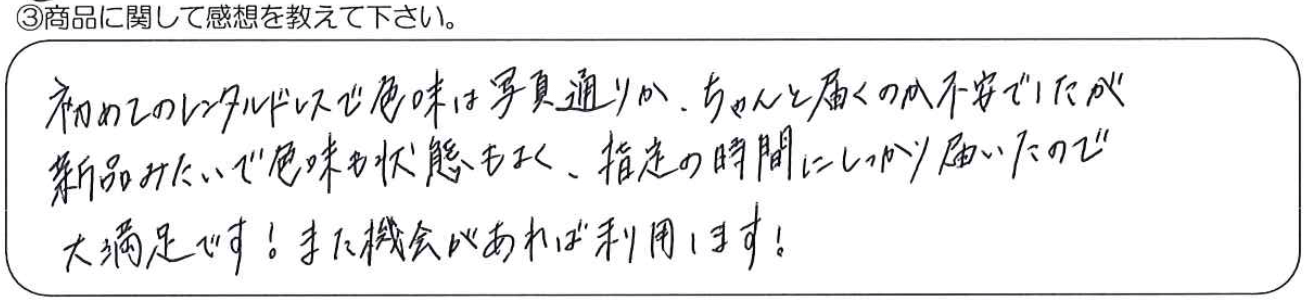 ③商品に関して感想を教えて下さい。
初めてのレンタルドレスで色味は写真通りか、ちゃんと届くのか不安でしたが
新品みたいで色味も状態もよく、指定の時間にしっかり届いたので
大満足です！また機会があれば利用します！